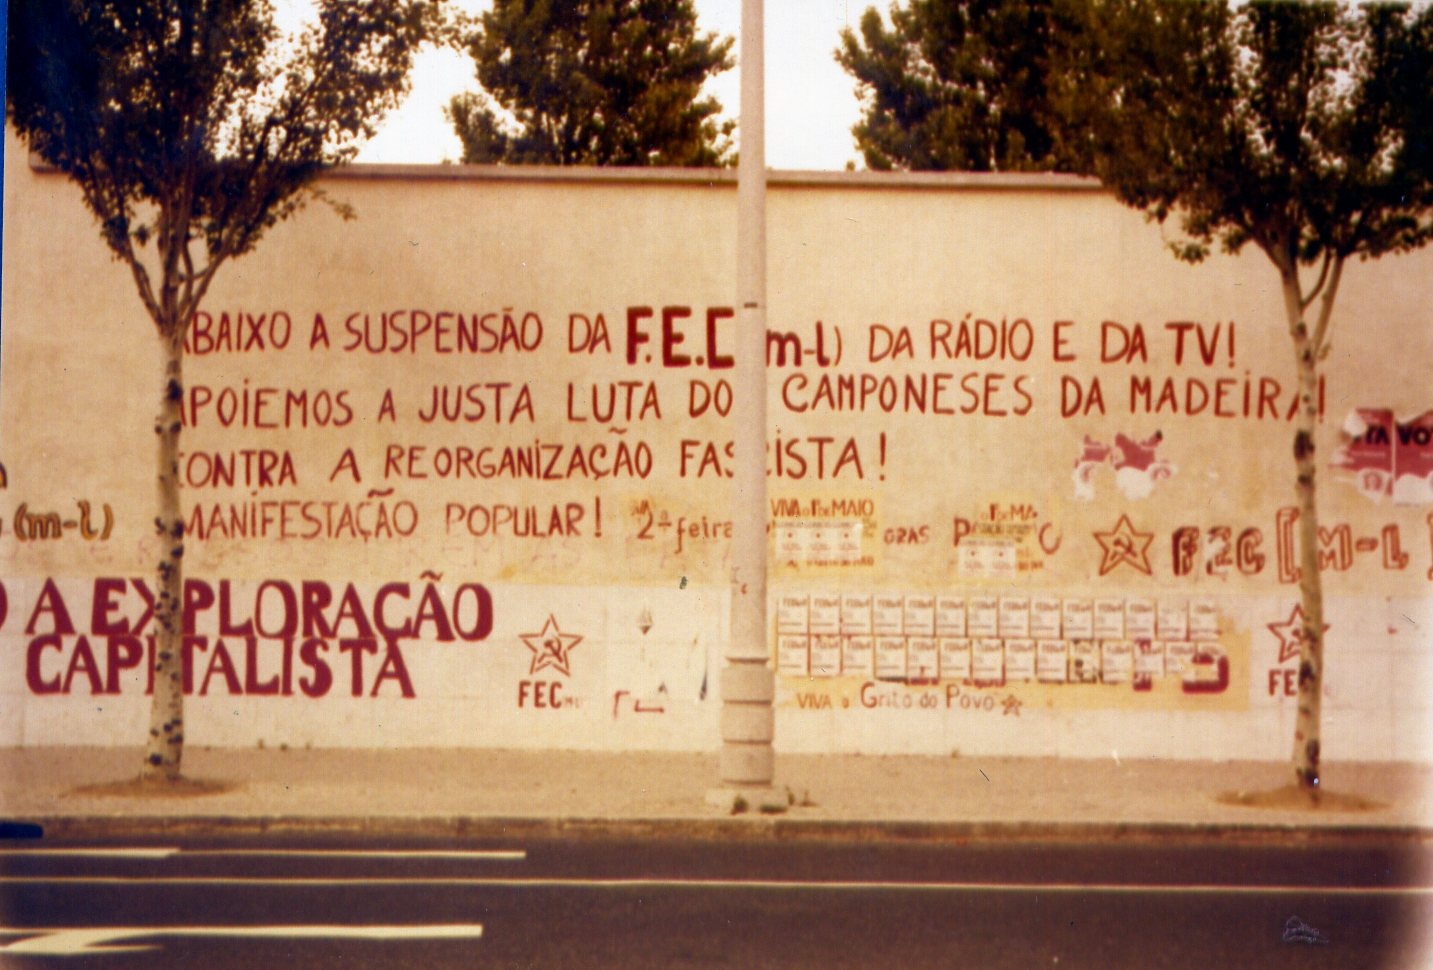 ABAIXO A SUSPENSÃO DA F.E.C (m-l) DA RÁDIO E DA TV!
APOIEMOS A JUSTA LUTA DOS CAMPONESES DA MADEIRA!
CONTRA A REORGANIZAÇÃO FASCISTA!
(m-l) MANIFESTAÇÃO POPULAR! 2ª feira
VIVA o 1º DE MAIO
FEC (M-L)
A EXPLORAÇÃO
CAPITALISTA
FEC
FEC
VIVA o Grito do Povo